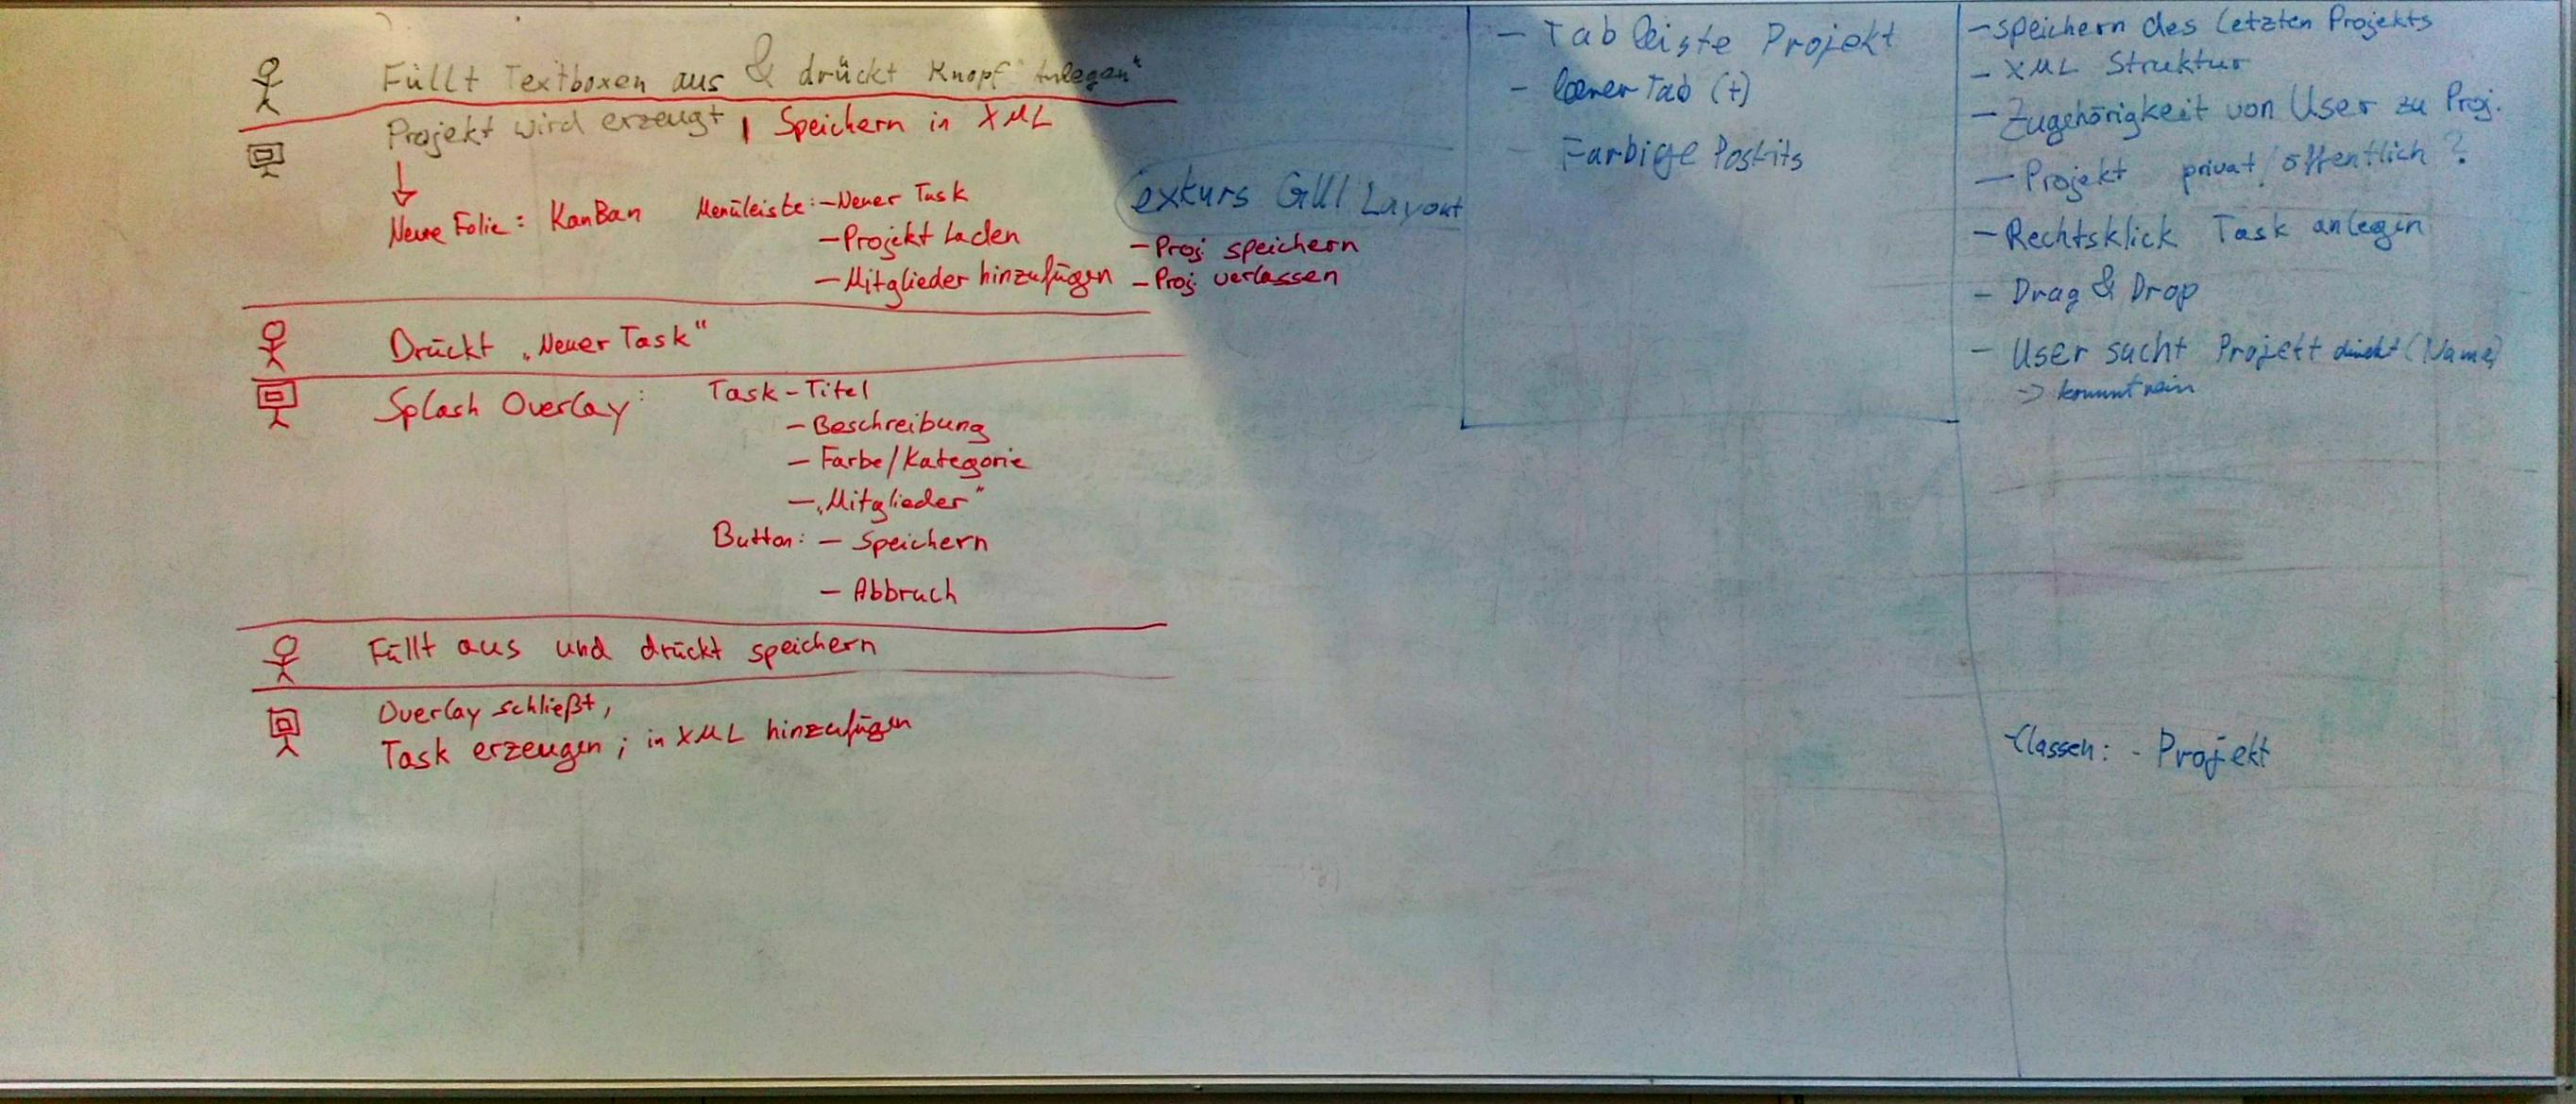 Füllt Textboxen aus & drückt Knopf "Anlegen"
Projekt wird erzeugt, Speichern in XML
Neue Folie: KanBan Menüleiste: - Neuer Task
- Projekt Laden
- Mitglieder hinzufügen
- Proj. speichern
- Proj. verlassen
Drückt „Neuer Task“
Splash Overlay: Task - Titel
- Beschreibung
- Farbe/Kategorie
- „Mitglieder“
Button: - Speichern
- Abbruch
Füllt aus und drückt speichern
Overlay schließt,
Task erzeugen; in XML hinzufügen
exkurs GUI Layout
- Tab leiste Projekt
- leerer Tab (+)
- Farbige Postits
- Speichern des letzten Projekts
- XML Struktur
- Zugehörigkeit von User zu Proj.
- Projekt privat/öffentlich?
- Rechtsklick Task anlegen
- Drag & Drop
- User sucht Projekt direkt (Name)
-> kommt rein
Classen: - Projekt